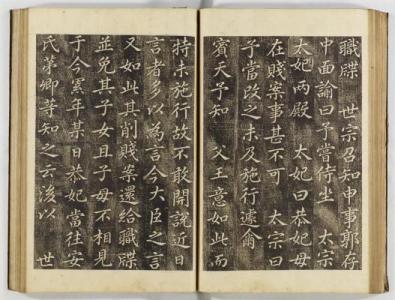 職牒　世宗召知申事郭存
中面諭曰予嘗侍坐　太宗
太妃兩殿　太妃曰恭妃母
在賤案事甚不可　太宗曰
予當改之未及施行遽爾
賓天予知　父王意如此而
特未施行故不敢開說近日
言者多以為言今大臣之言
又如此其削賤案還給職牒
並免其子女且子母不相見
于今累年某日恭妃當往安
氏第卿等知之云後以　世